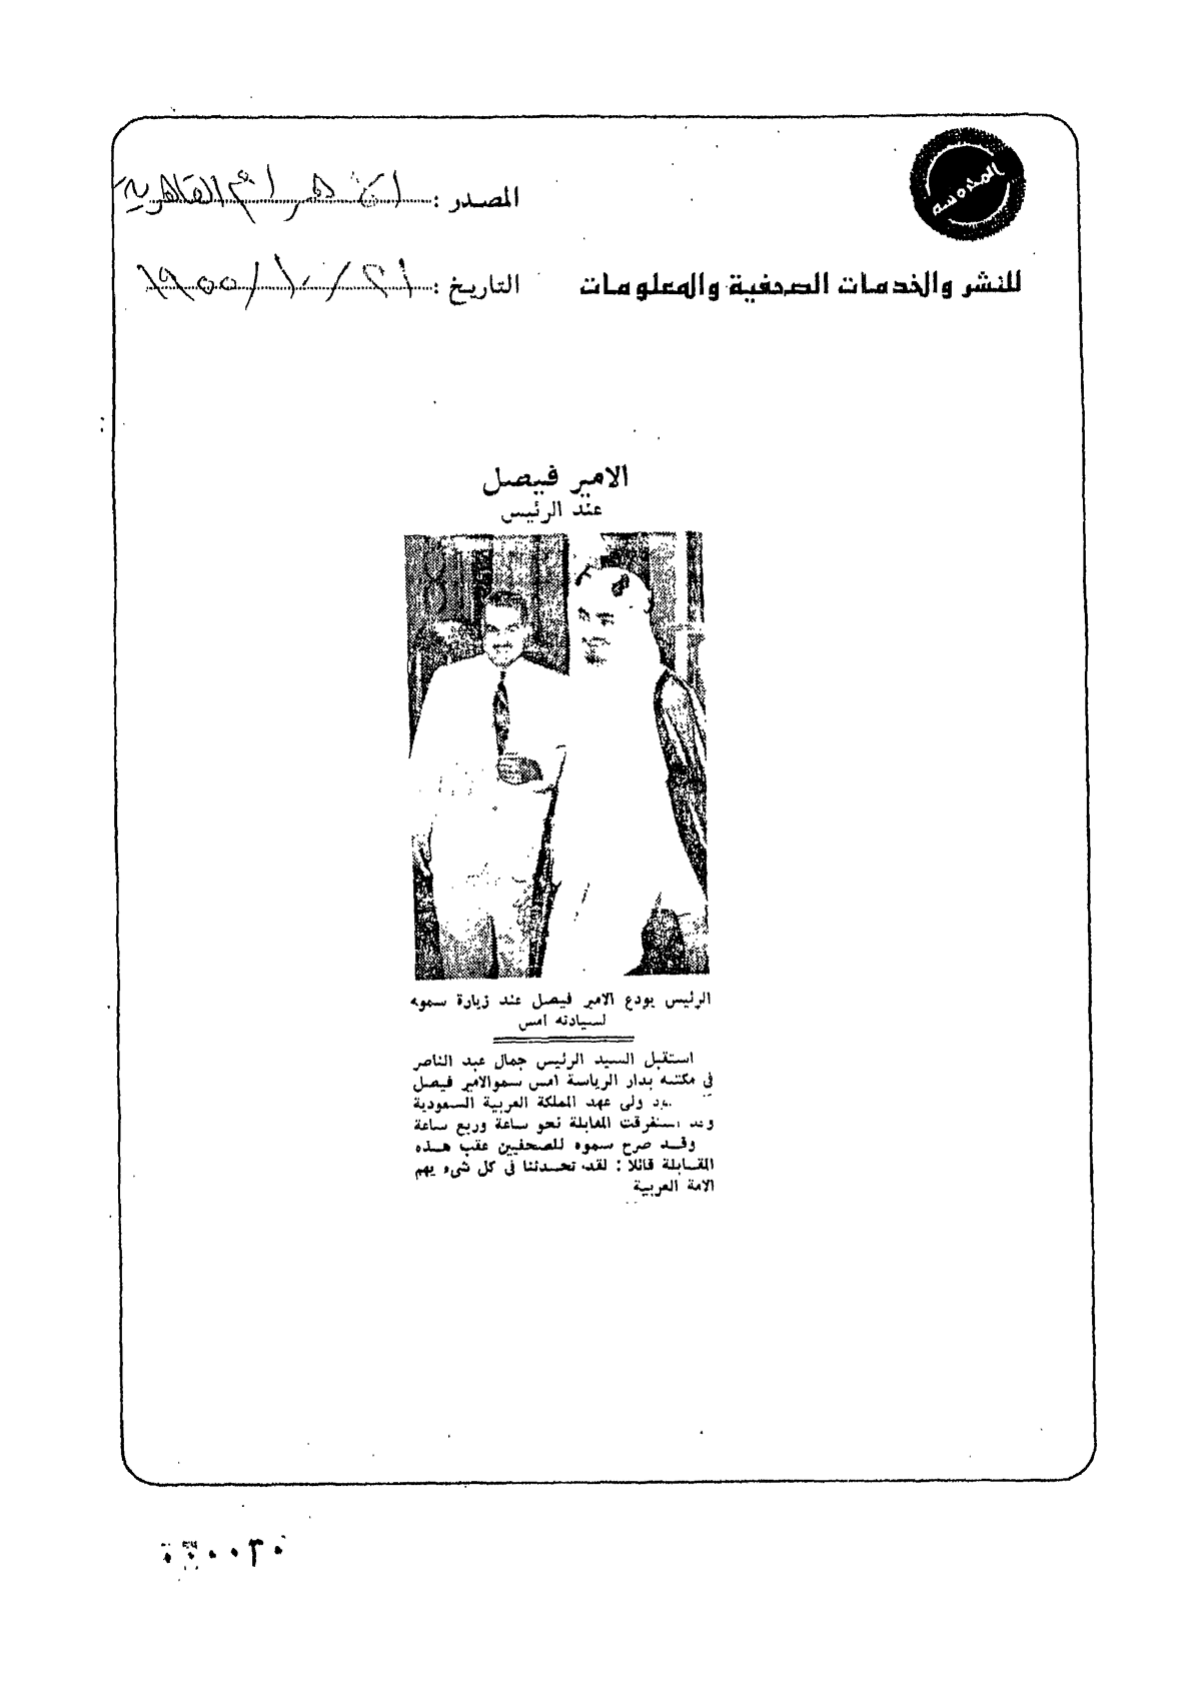 المحروسة
المصدر : الأهرام القاهرية
للنشر والخدمات الصحفية والمعلومات
التاريخ : ٢١/١٠/١٩٥٥
الامير فيصل
عند الرئيس
الرئيس يودع الامير فيصل عند زيارة سموه
لسيادته امس
استقبل السيد الرئيس جمال عبد الناصر
فى مكتبه بدار الرياسة امس سمو الامير فيصل
ولى عهد المملكة العربية السعودية
وقد استغرقت المقابلة نحو ساعة وربع ساعة
وقد صرح سموه للصحفيين عقب هذه
المقابلة قائلا : لقد تحدثنا فى كل شىء يهم
الامة العربية